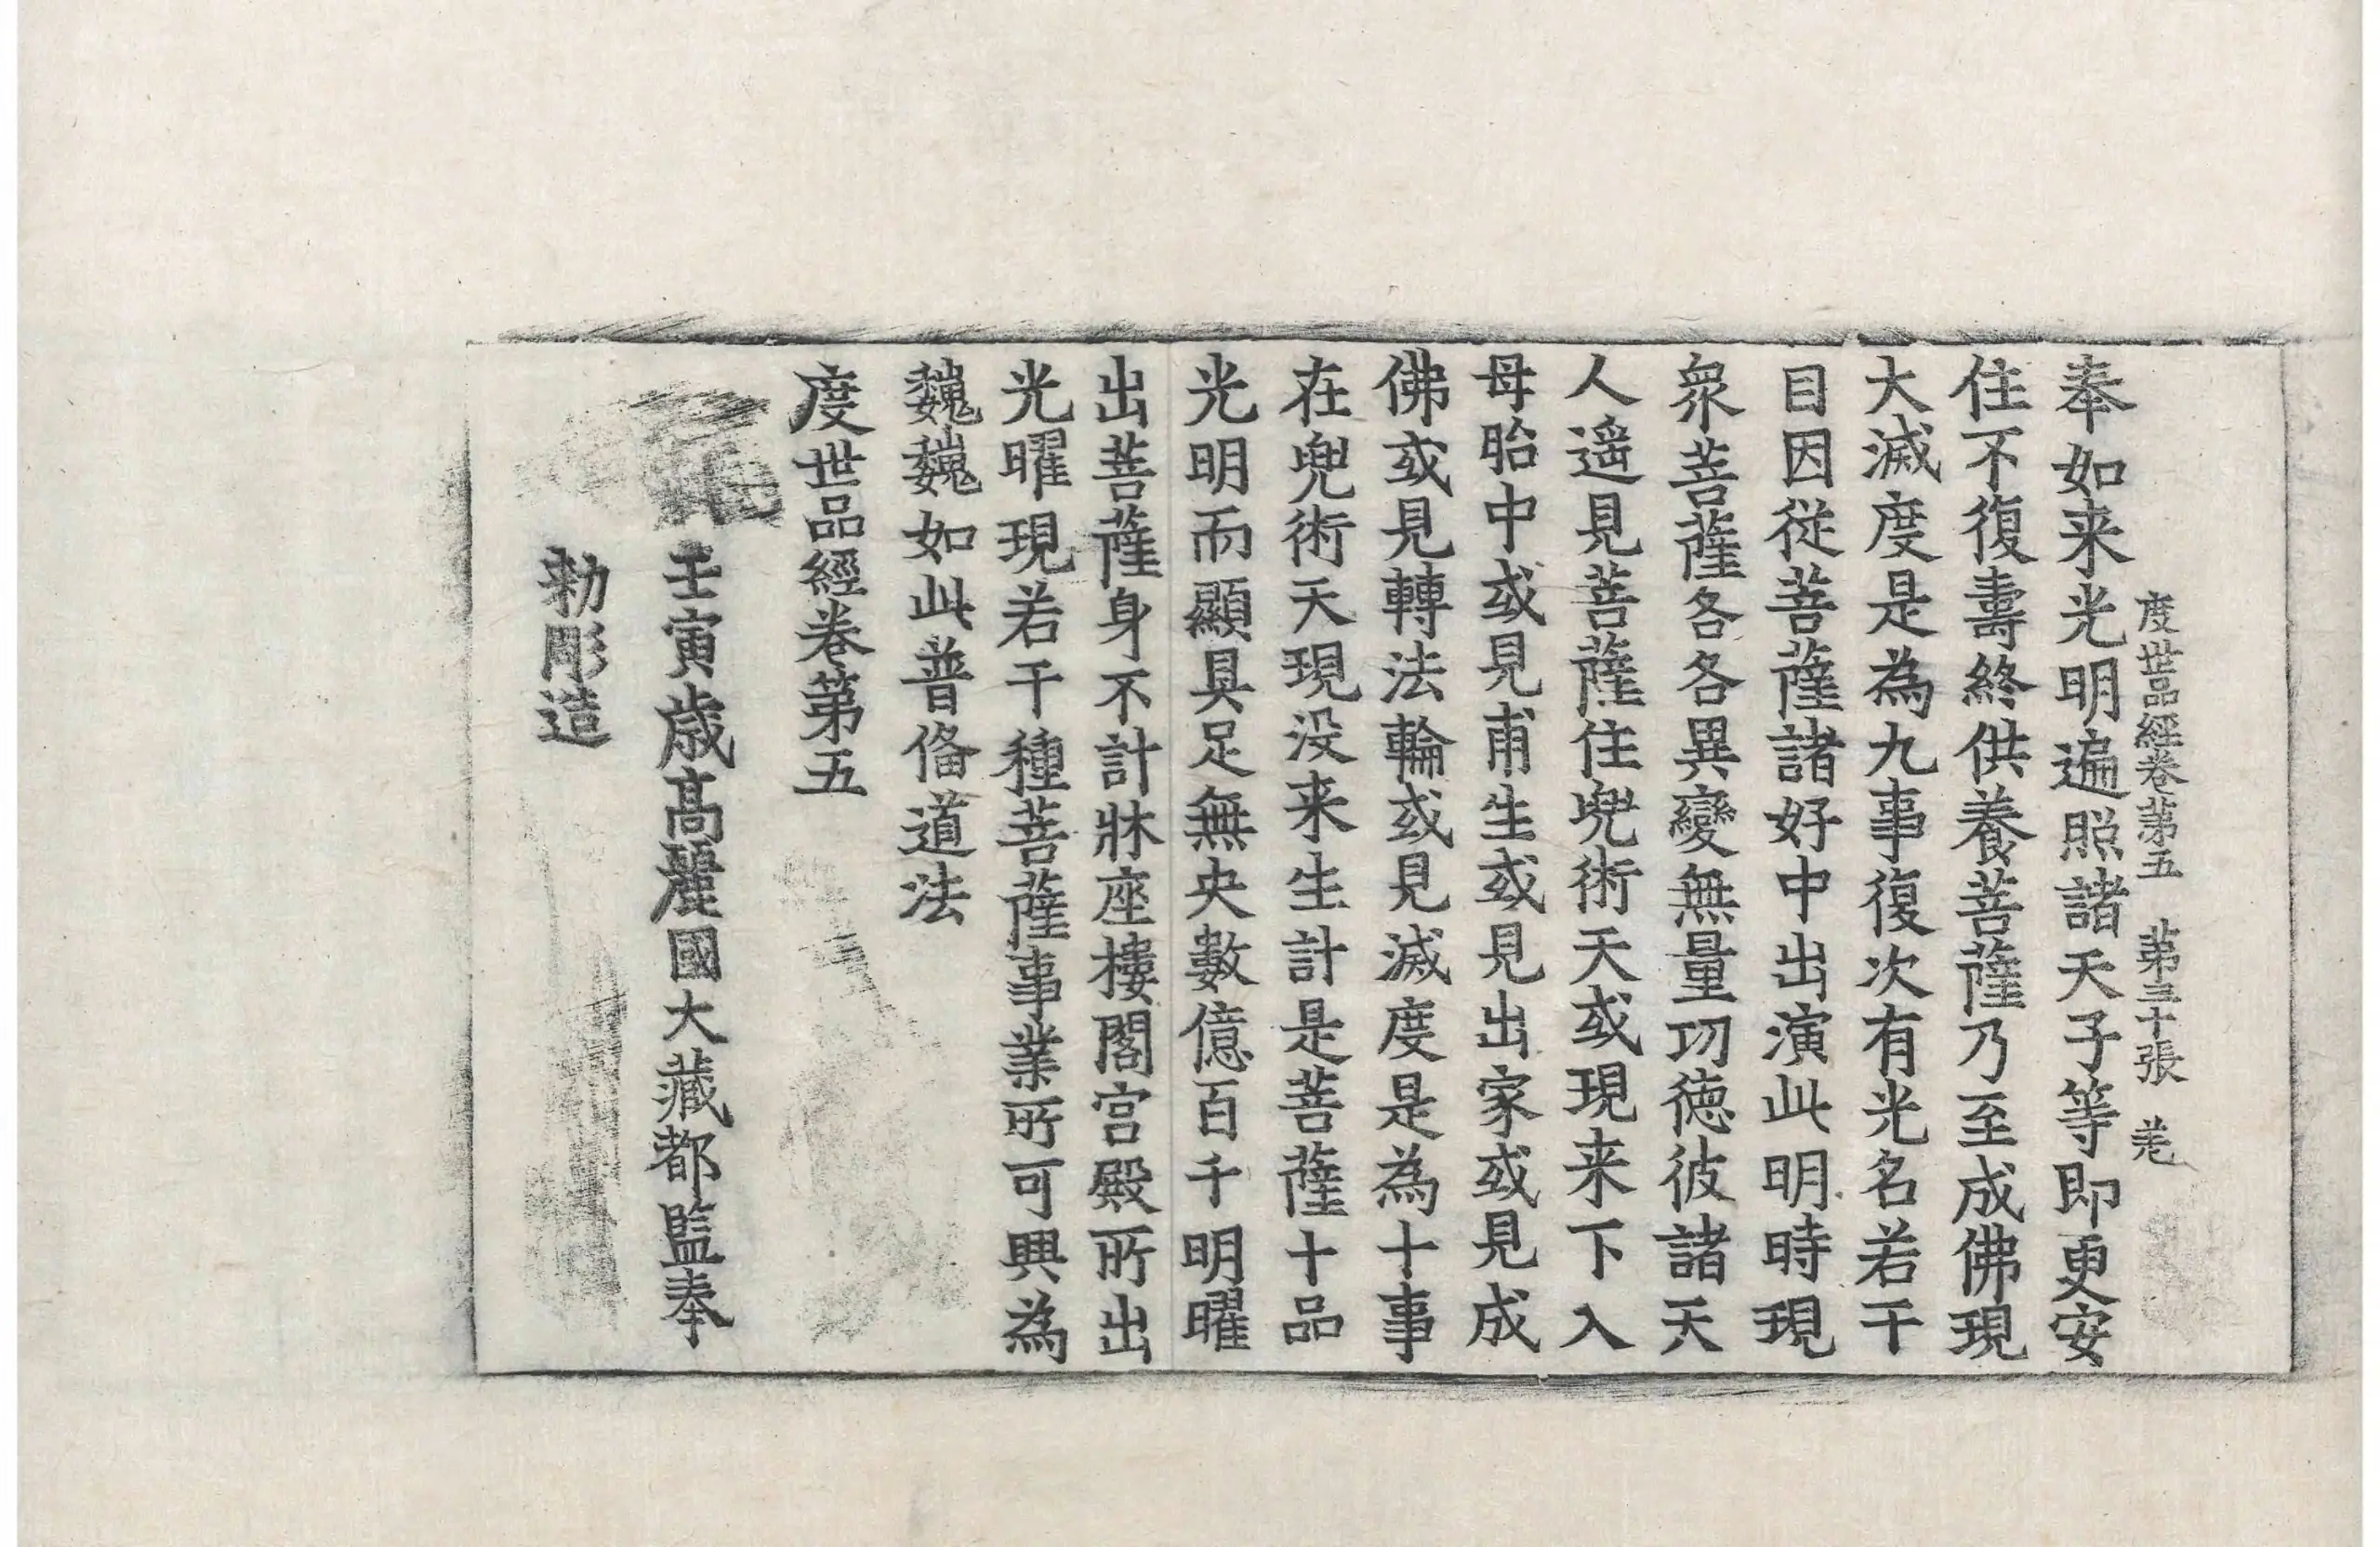 度世品經卷第五 第三十張
奉如来光明遍照諸天子等即更安
住不復壽終供養菩薩乃至成佛現
大滅度是為九事復次有光名若干
目因從菩薩諸好中出演此明時現
衆菩薩各各異變無量功德彼諸天
人遥見菩薩住兜術天或現来下入
母胎中或見甫生或見出家或見成
佛或見轉法輪或見滅度是為十事
在兜術天現没来生計是菩薩十品
光明而顯具足無央數億百千明曜
出菩薩身不計牀座樓閣宫殿所出
光曜現若干種菩薩事業所可興為
巍巍如此普俻道法
度世品經卷第五
壬寅歳髙麗國大藏都監奉
勅彫造